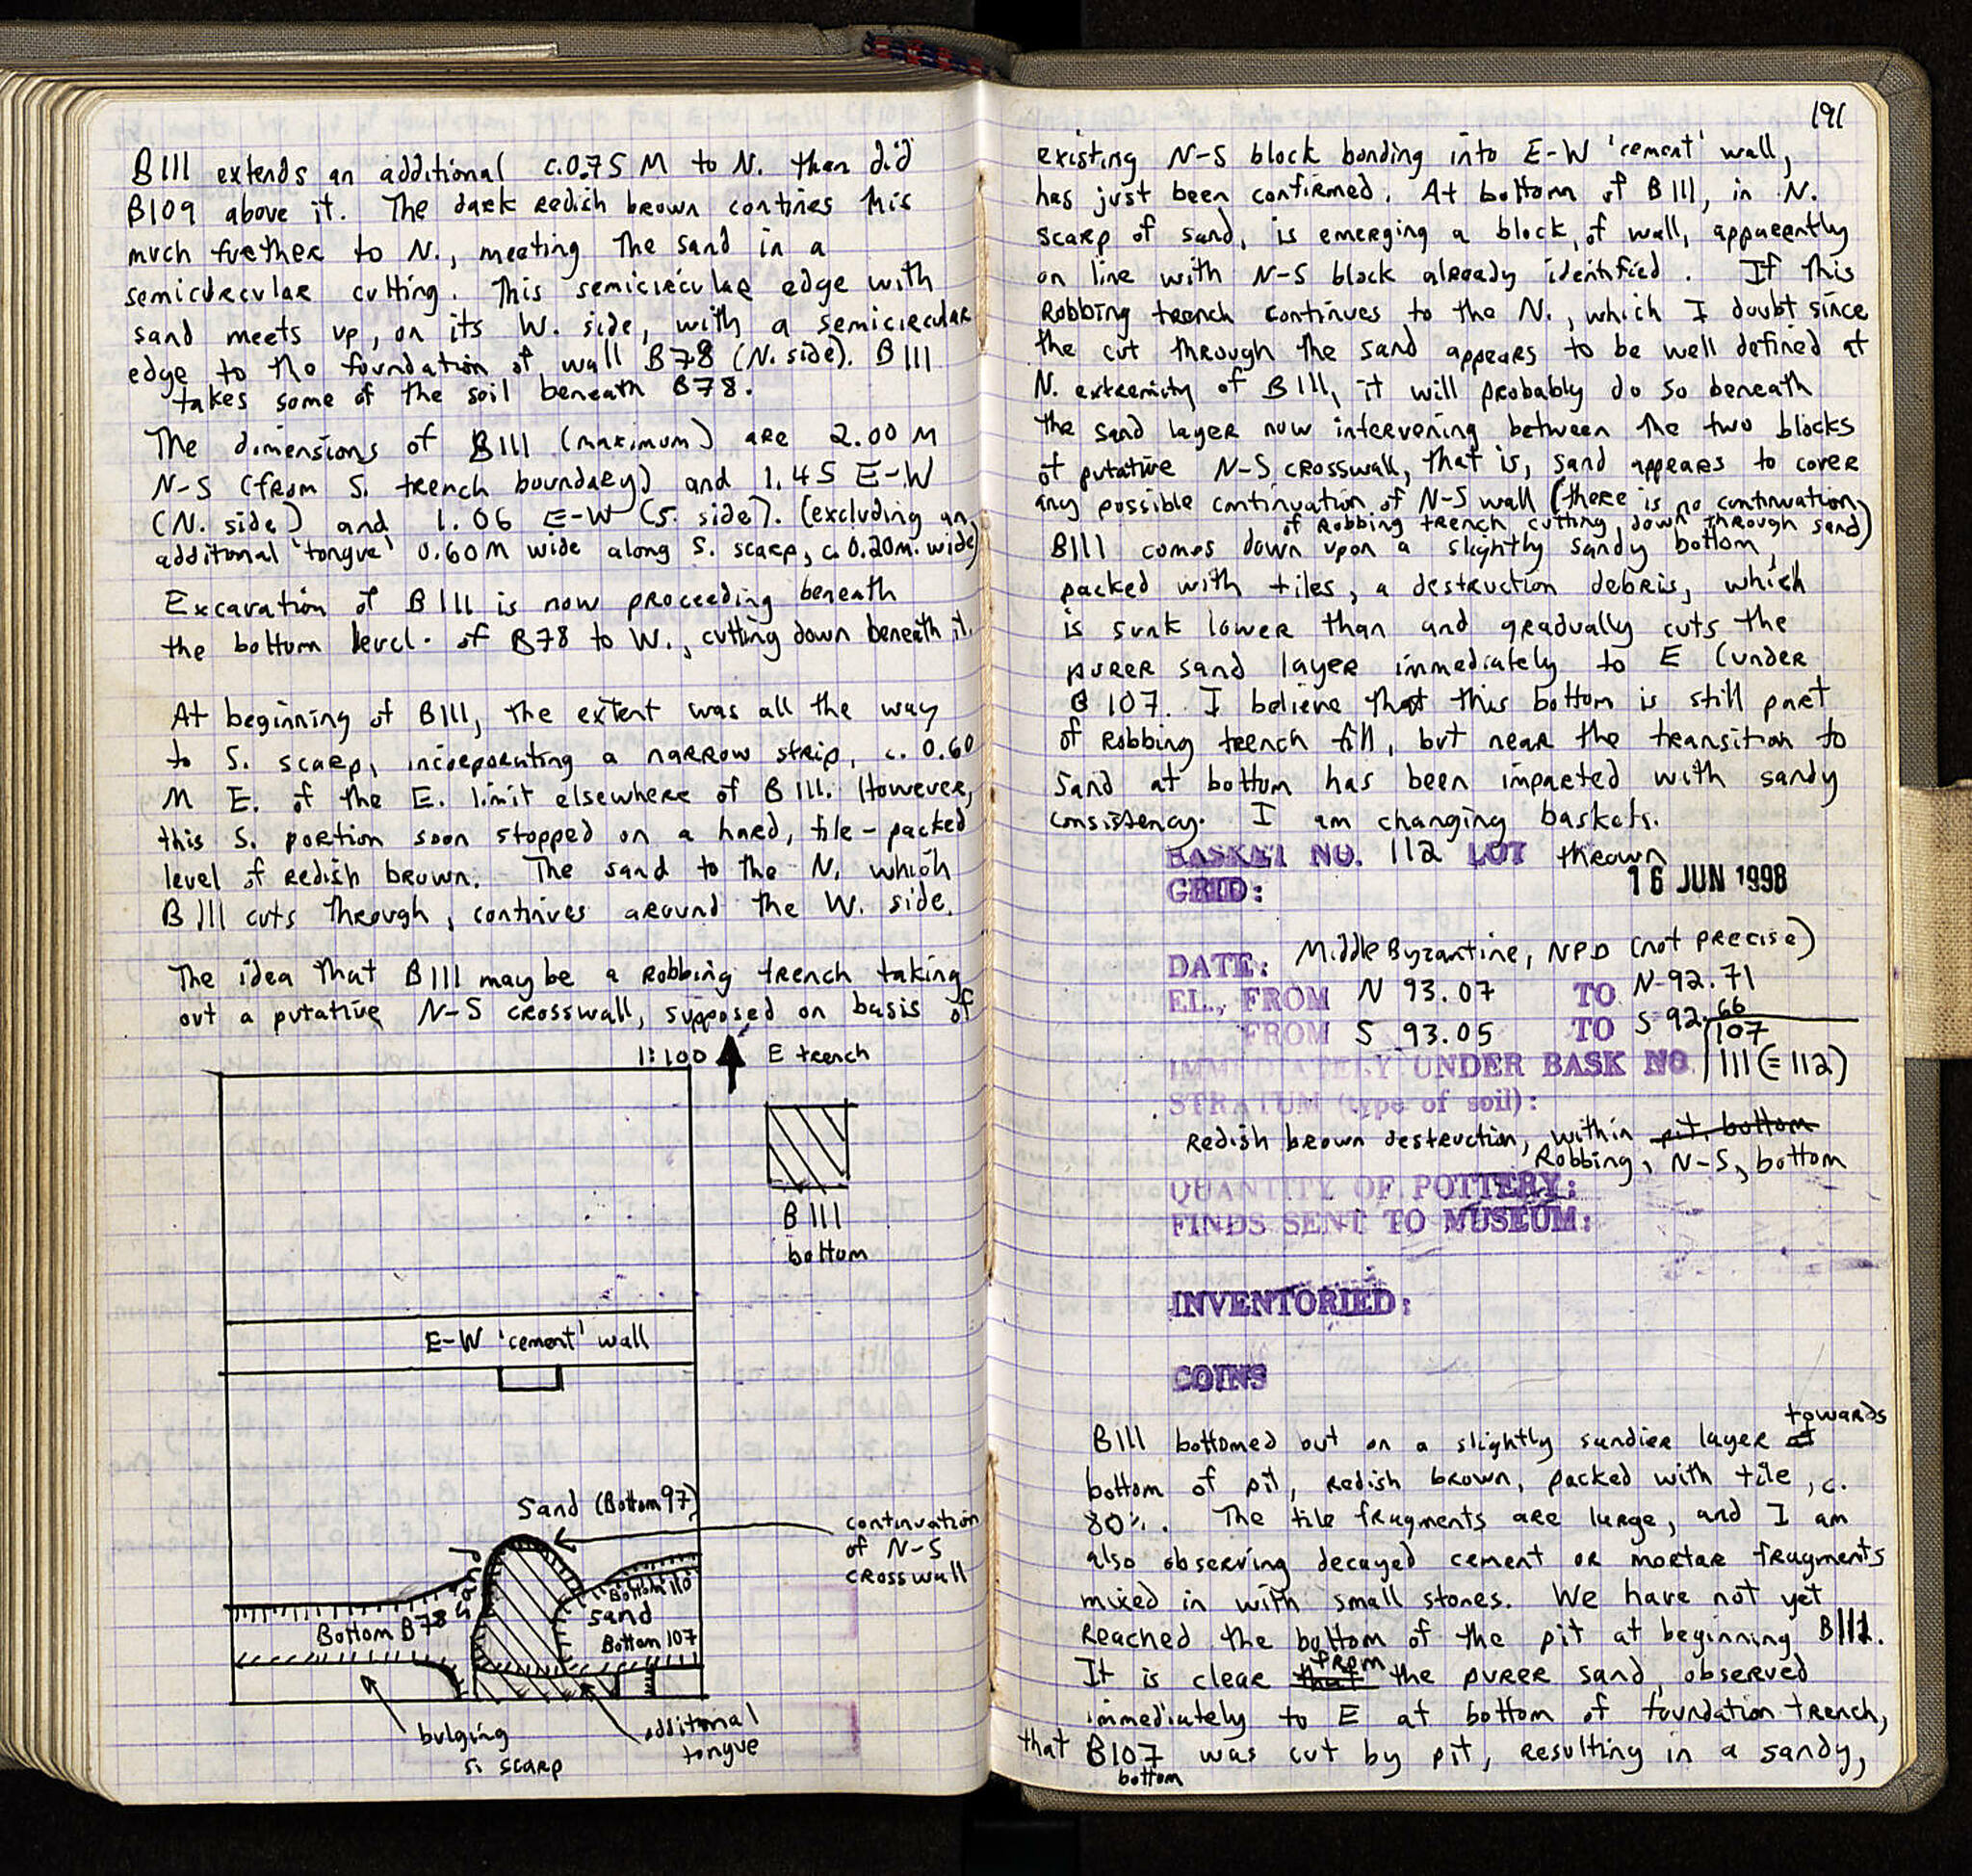 B111 extends an additional c.0.75 M to N. than did
B109 above it. The dark redish brown contines this
much further to N., meeting the sand in a
semicircular cutting. This semicircular edge with
sand meets up, on its W. side, with a semicircular
edge to the foundation of wall B78 (N. side). B111
takes some of the soil beneath B78.
The dimensions of B111 (maximum) are 2.00 M
N-S (from S. trench boundary) and 1.45 E-W
(N. side) and 1.06 E-W (S. side). (excluding an
additional 'tongue' 0.60M wide along S. scarp, c. 0.20m. wide)
Excavation of B111 is now proceeding beneath
the bottom level of B78 to W., cutting down beneath it.
At beginning of B111, the extent was all the way
to S. scarp, incorporating a narrow strip, c. 0.60
M E. of the E. limit elsewhere of B111. However,
this S. portion soon stopped on a hard, tile-packed
level of redish brown. The sand to the N, which
B111 cuts through, continues around the W. side.
The idea that B111 may be a Robbing trench taking
out a putative N-S crosswall, supposed on basis of
1:100 E trench
B111
bottom
E-W 'cement' wall
Sand (Bottom 97)
continuation
of N-S
crosswall
Sand
Bottom 110
Sand
Bottom B78
Bottom 107
bulging
S. scarp
additional
tongue
191
existing N-S block bonding into E-W 'cement' wall,
has just been confirmed. At bottom of B111, in N.
scarp of sand, is emerging a block, of wall, apparently
on line with N-S block already identified. If this
Robbing trench continues to the N., which I doubt since
the cut through the sand appears to be well defined at
N. extremity of B111, it will probably do so beneath
the sand layer now intervening between the two blocks
of putative N-S crosswall, that is, sand appears to cover
any possible continuation of N-S wall (there is no continuation
of Robbing trench cutting down through sand)
B111 comes down upon a slightly sandy bottom,
packed with tiles, a destruction debris, which
is sunk lower than and gradually cuts the
purer sand layer immediately to E (under
B107. I believe that this bottom is still part
of Robbing trench fill, but near the transition to
sand at bottom has been imparted with sandy
consistency. I am changing baskets.
BASKET NO. 112 LOT thrown
16 JUN 1998
GRID:
DATE: Middle Byzantine, NPD (not precise)
EL., FROM N 93.07 TO N-92.71
FROM S 93.05 TO S 92.66
107
IMMEDIATELY UNDER BASK NO. 111 (=112)
STRATUM (type of soil):
Redish brown destruction, within pit, bottom
Robbing, N-S, bottom
QUANTITY OF POTTERY:
FINDS SENT TO MUSEUM:
INVENTORIED:
COINS
towards
B111 bottomed out on a slightly sandier layer at
bottom of pit, redish brown, packed with tile, c.
80%. The tile fragments are large, and I am
also observing decayed cement or mortar fragments
mixed in with small stones. We have not yet
reached the bottom of the pit at beginning B112.
from
It is clear that the purer sand, observed
immediately to E at bottom of foundation trench,
that B107 was cut by pit, resulting in a sandy,
bottom